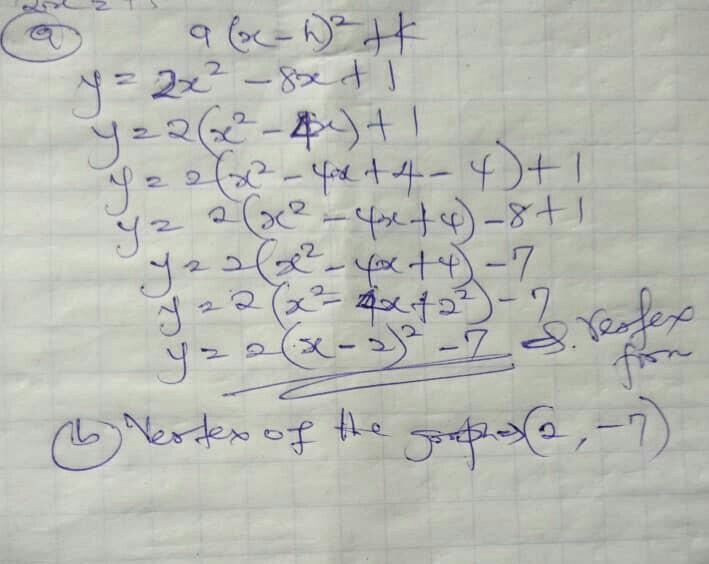 (a) a(x-h)² + k
y = 2x² - 8x + 1
y = 2(x² - 4x) + 1
y = 2(x² - 4x + 4 - 4) + 1
y = 2(x² - 4x + 4) - 8 + 1
y = 2(x² - 4x + 4) - 7
y = 2(x² - 4x + 2²) - 7
y = 2(x - 2)² - 7 Vertex
form
(b) Vertex of the graph ⇒ (2, -7)